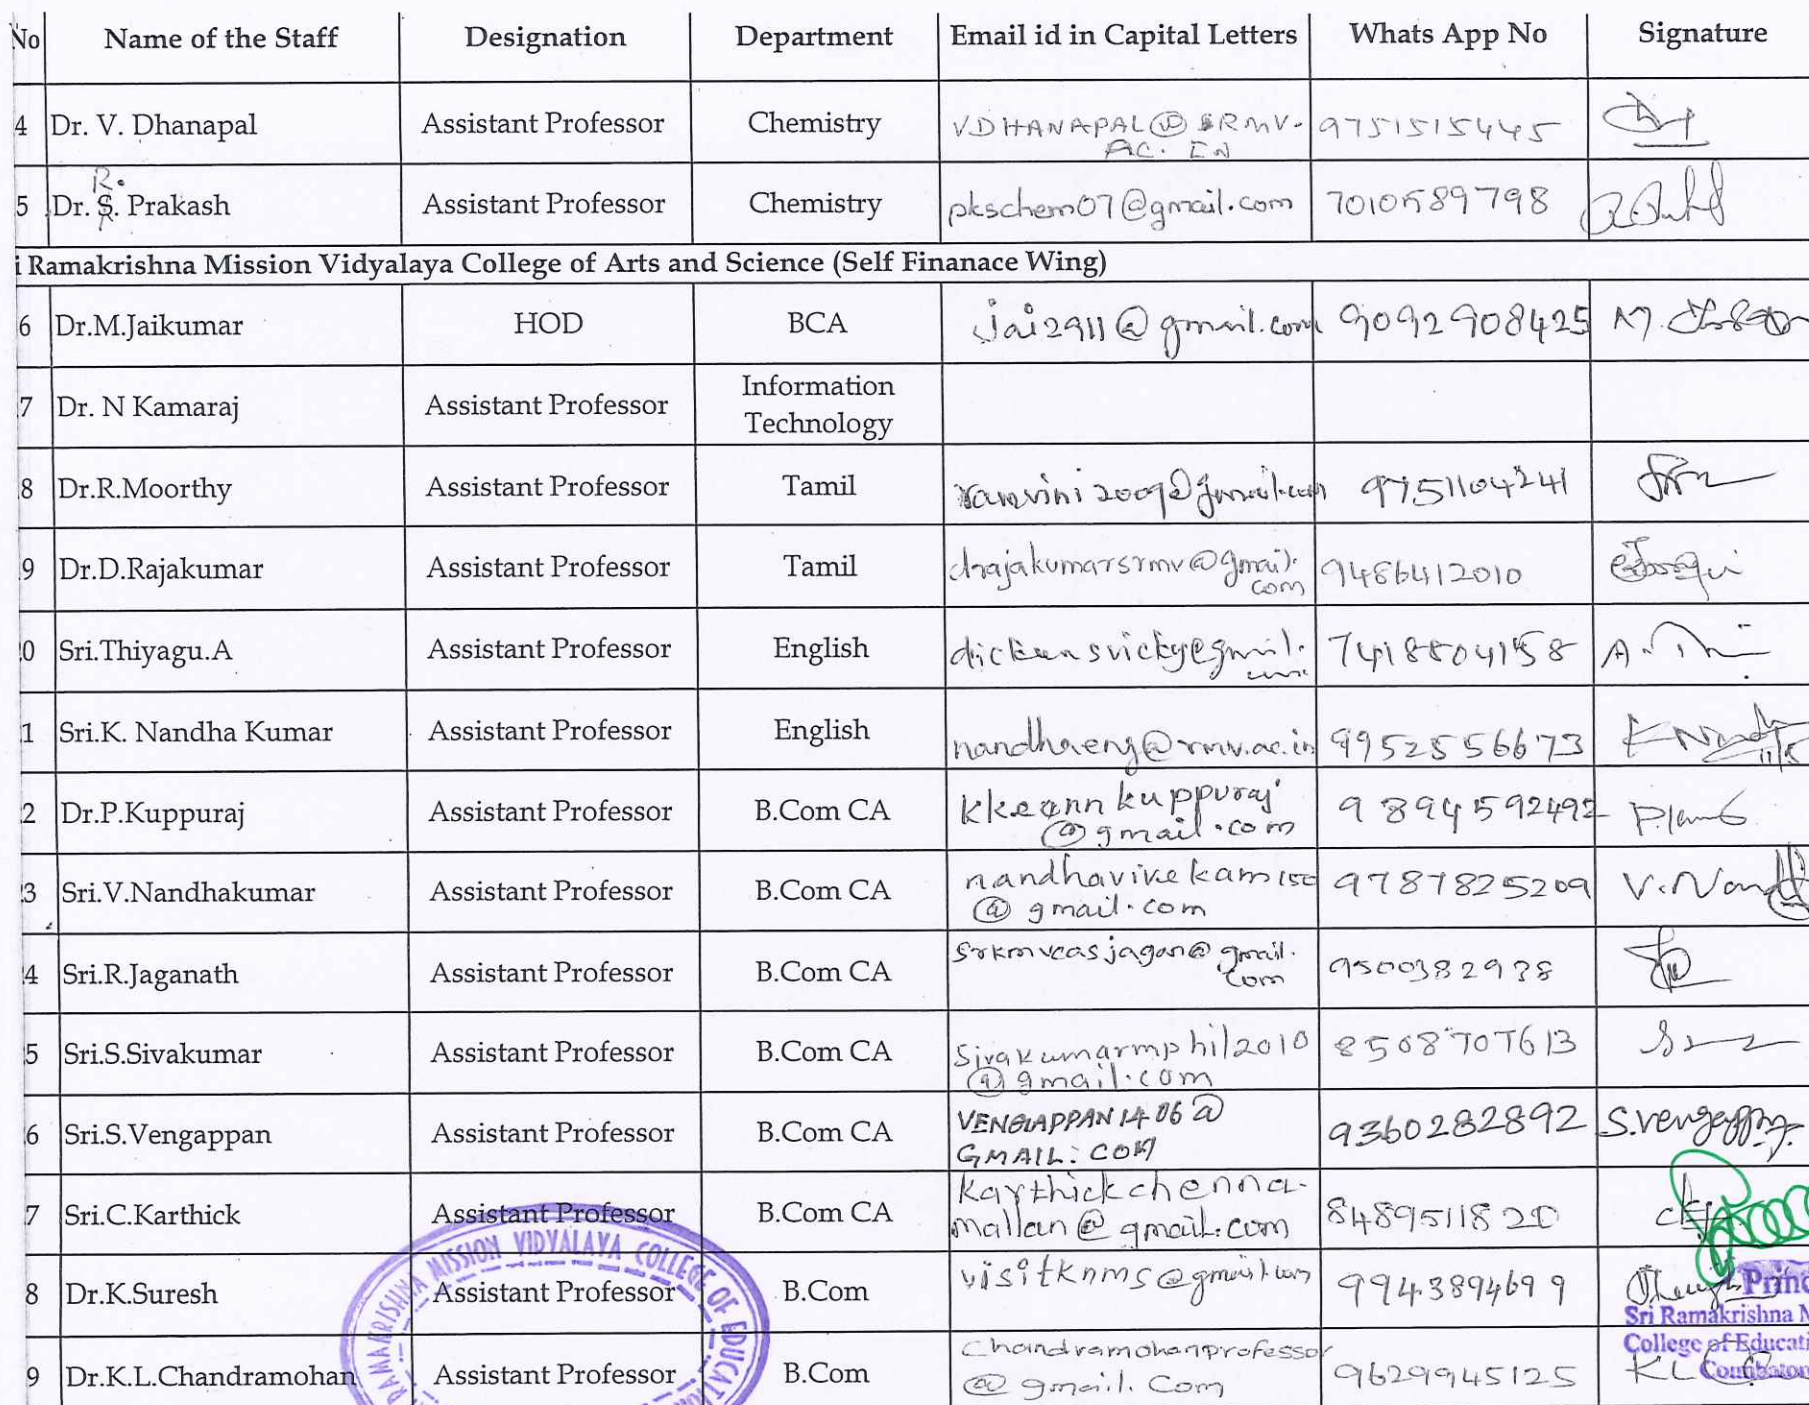 No Name of the Staff Designation Department Email id in Capital Letters Whats App No Signature
4 Dr. V. Dhanapal Assistant Professor Chemistry VDHANAPAL@SRMV. 9751515445
AC. IN
R.
5 Dr. S. Prakash Assistant Professor Chemistry pkschem07@gmail.com 7010589798
i Ramakrishna Mission Vidyalaya College of Arts and Science (Self Finanace Wing)
6 Dr.M.Jaikumar HOD BCA jai2911@gmail.com 9092908425
7 Dr. N Kamaraj Assistant Professor Information
Technology
8 Dr.R.Moorthy Assistant Professor Tamil ramvini2009@gmail.com 9751104241
9 Dr.D.Rajakumar Assistant Professor Tamil drajakumarsrmv@gmail. 9486412010
com
0 Sri.Thiyagu.A Assistant Professor English 7418804158
1 Sri.K. Nandha Kumar Assistant Professor English nandhaeng@rmv.ac.in 9952556673 K Nandh
11/5
2 Dr.P.Kuppuraj Assistant Professor B.Com CA kkeannkuppuraj 9894592492
@gmail.com
3 Sri.V.Nandhakumar Assistant Professor B.Com CA nandhavivekam150 9787825209 V. Nand
@gmail.com
4 Sri.R.Jaganath Assistant Professor B.Com CA srkmvcasjagan@gmail. 9500382938
com
5 Sri.S.Sivakumar Assistant Professor B.Com CA Sivakumarmphil2010 8508707613
@gmail.com
6 Sri.S.Vengappan Assistant Professor B.Com CA VENGAPPAN1406@ 9360282892 S.Vengappan
GMAIL.COM
7 Sri.C.Karthick Assistant Professor B.Com CA Karthickchenna- 8489511820
mallan@gmail.com
8 Dr.K.Suresh Assistant Professor B.Com visitknms@gmail.com 9943894699
Princ
Sri Ramakrishna M
College of Educati
Coimbator
9 Dr.K.L.Chandramohan Assistant Professor B.Com Chandramohanprofessor 9629945125
@gmail.com
RAMAKRISHNA MISSION VIDYALAYA COLLEGE OF EDUCAT